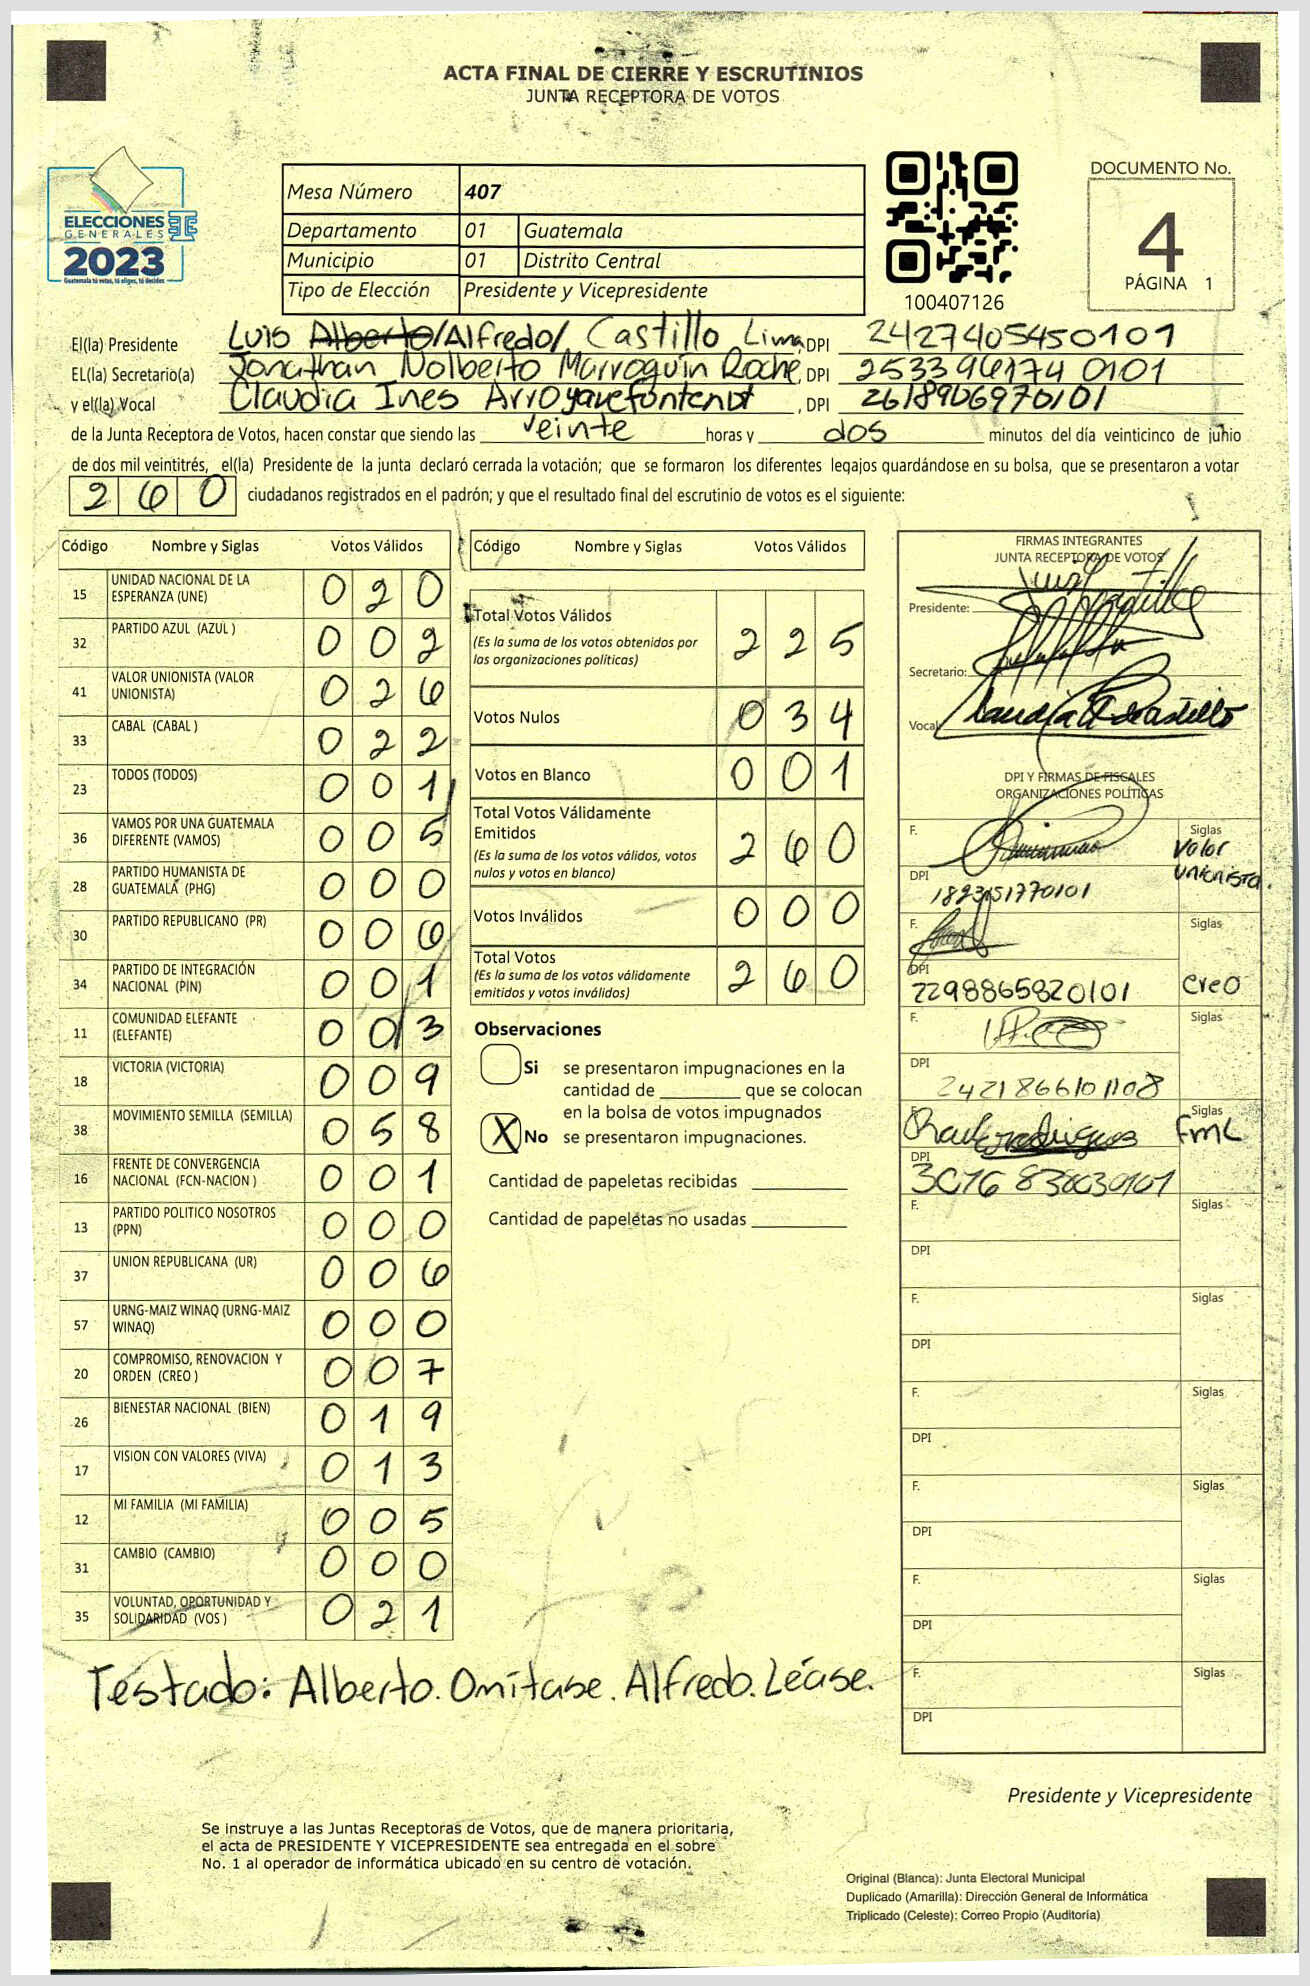 ACTA FINAL DE CIERRE Y ESCRUTINIOS
JUNTA RECEPTORA DE VOTOS
ELECCIONES
GENERALES
2023
Guatemala tú votas, tú eliges, tú decides
Mesa Número 407
Departamento 01 Guatemala
Municipio 01 Distrito Central
Tipo de Elección Presidente y Vicepresidente
100407126
DOCUMENTO No.
4
PÁGINA 1
El(la) Presidente Luis Alberto/Alfredo/ Castillo Lima, DPI 2427405450101
EL(la) Secretario(a) Jonathan Nolberto Marroquín Roche, DPI 2533961740101
y el(la) Vocal Claudia Ines , DPI 2618906970101
de la Junta Receptora de Votos, hacen constar que siendo las veinte horas y dos minutos del día veinticinco de junio
de dos mil veintitrés, el(la) Presidente de la junta declaró cerrada la votación; que se formaron los diferentes legajos guardándose en su bolsa, que se presentaron a votar
260 ciudadanos registrados en el padrón; y que el resultado final del escrutinio de votos es el siguiente:
Código Nombre y Siglas Votos Válidos
15 UNIDAD NACIONAL DE LA ESPERANZA (UNE) 020
32 PARTIDO AZUL (AZUL ) 002
41 VALOR UNIONISTA (VALOR UNIONISTA) 026
33 CABAL (CABAL ) 022
23 TODOS (TODOS) 001
36 VAMOS POR UNA GUATEMALA DIFERENTE (VAMOS) 005
28 PARTIDO HUMANISTA DE GUATEMALA (PHG) 000
30 PARTIDO REPUBLICANO (PR) 006
34 PARTIDO DE INTEGRACIÓN NACIONAL (PIN) 001
11 COMUNIDAD ELEFANTE (ELEFANTE) 003
18 VICTORIA (VICTORIA) 009
38 MOVIMIENTO SEMILLA (SEMILLA) 058
16 FRENTE DE CONVERGENCIA NACIONAL (FCN-NACION ) 001
13 PARTIDO POLITICO NOSOTROS (PPN) 000
37 UNION REPUBLICANA (UR) 006
57 URNG-MAIZ WINAQ (URNG-MAIZ WINAQ) 000
20 COMPROMISO, RENOVACION Y ORDEN (CREO ) 007
26 BIENESTAR NACIONAL (BIEN) 019
17 VISION CON VALORES (VIVA) 013
12 MI FAMILIA (MI FAMILIA) 005
31 CAMBIO (CAMBIO) 000
35 VOLUNTAD, OPORTUNIDAD Y SOLIDARIDAD (VOS ) 021
Código Nombre y Siglas Votos Válidos
Total Votos Válidos 225
(Es la suma de los votos obtenidos por
las organizaciones políticas)
Votos Nulos 034
Votos en Blanco 001
Total Votos Válidamente
Emitidos 260
(Es la suma de los votos válidos, votos
nulos y votos en blanco)
Votos Inválidos 000
Total Votos 260
(Es la suma de los votos válidamente
emitidos y votos inválidos)
Observaciones
Si se presentaron impugnaciones en la
cantidad de ________ que se colocan
en la bolsa de votos impugnados
X No se presentaron impugnaciones.
Cantidad de papeletas recibidas
Cantidad de papeletas no usadas
FIRMAS INTEGRANTES
JUNTA RECEPTORA DE VOTOS
Presidente:
Secretario:
Vocal
DPI Y FIRMAS DE FISCALES
ORGANIZACIONES POLÍTICAS
F. Siglas Valor Unionista.
DPI 1823151770101
F. Siglas Creo
DPI 2298865820101
F. Siglas
DPI 2421866101108
F. Siglas FML
DPI
F. Siglas
DPI
F. Siglas
DPI
F. Siglas
DPI
F. Siglas
DPI
F. Siglas
DPI
F. Siglas
DPI
Testado: Alberto. Omítase. Alfredo. Léase.
Presidente y Vicepresidente
Se instruye a las Juntas Receptoras de Votos, que de manera prioritaria,
el acta de PRESIDENTE Y VICEPRESIDENTE sea entregada en el sobre
No. 1 al operador de informática ubicado en su centro de votación.
Original (Blanca): Junta Electoral Municipal
Duplicado (Amarilla): Dirección General de Informática
Triplicado (Celeste): Correo Propio (Auditoría)